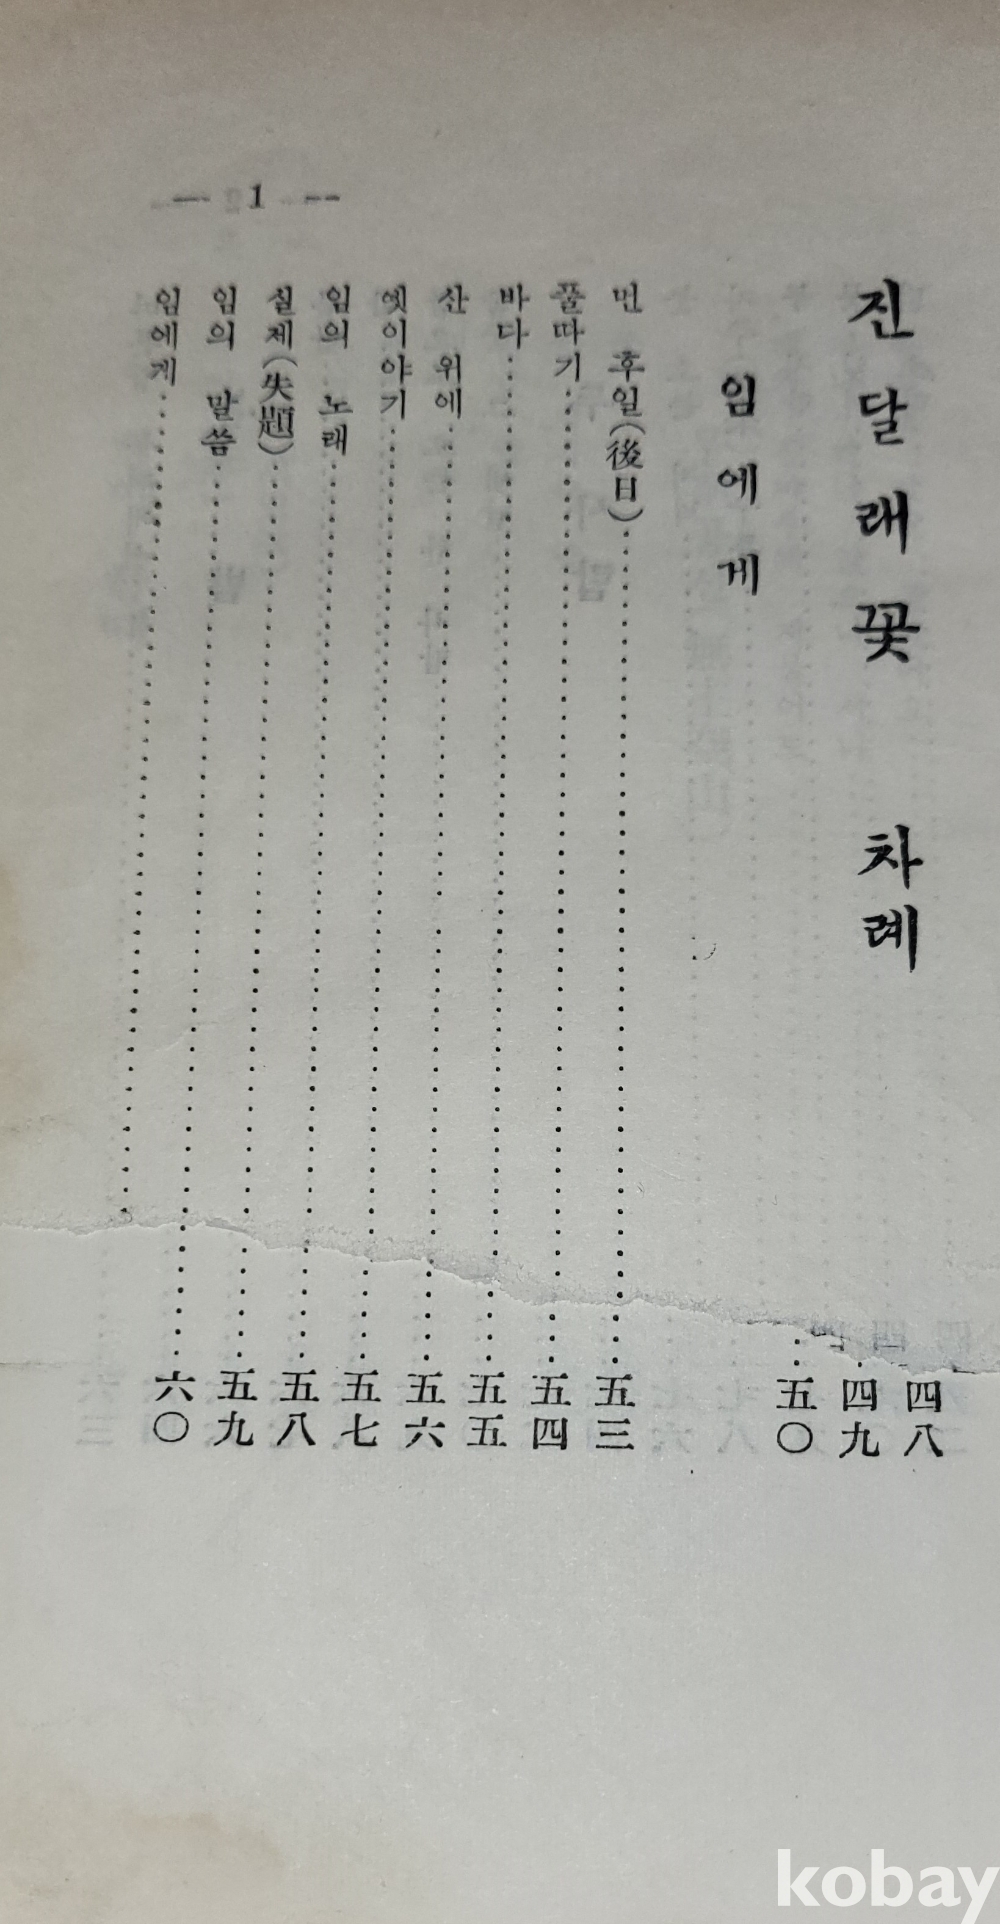 진달래꽃 차례
四八
四九
五〇
임에게
먼 후일(後日)……五三
풀따기……五四
바다……五五
산 위에……五六
옛이야기……五七
임의 노래……五八
실제(失題)……五九
임의 말씀……六〇
임에게……
— 1 --
kobay